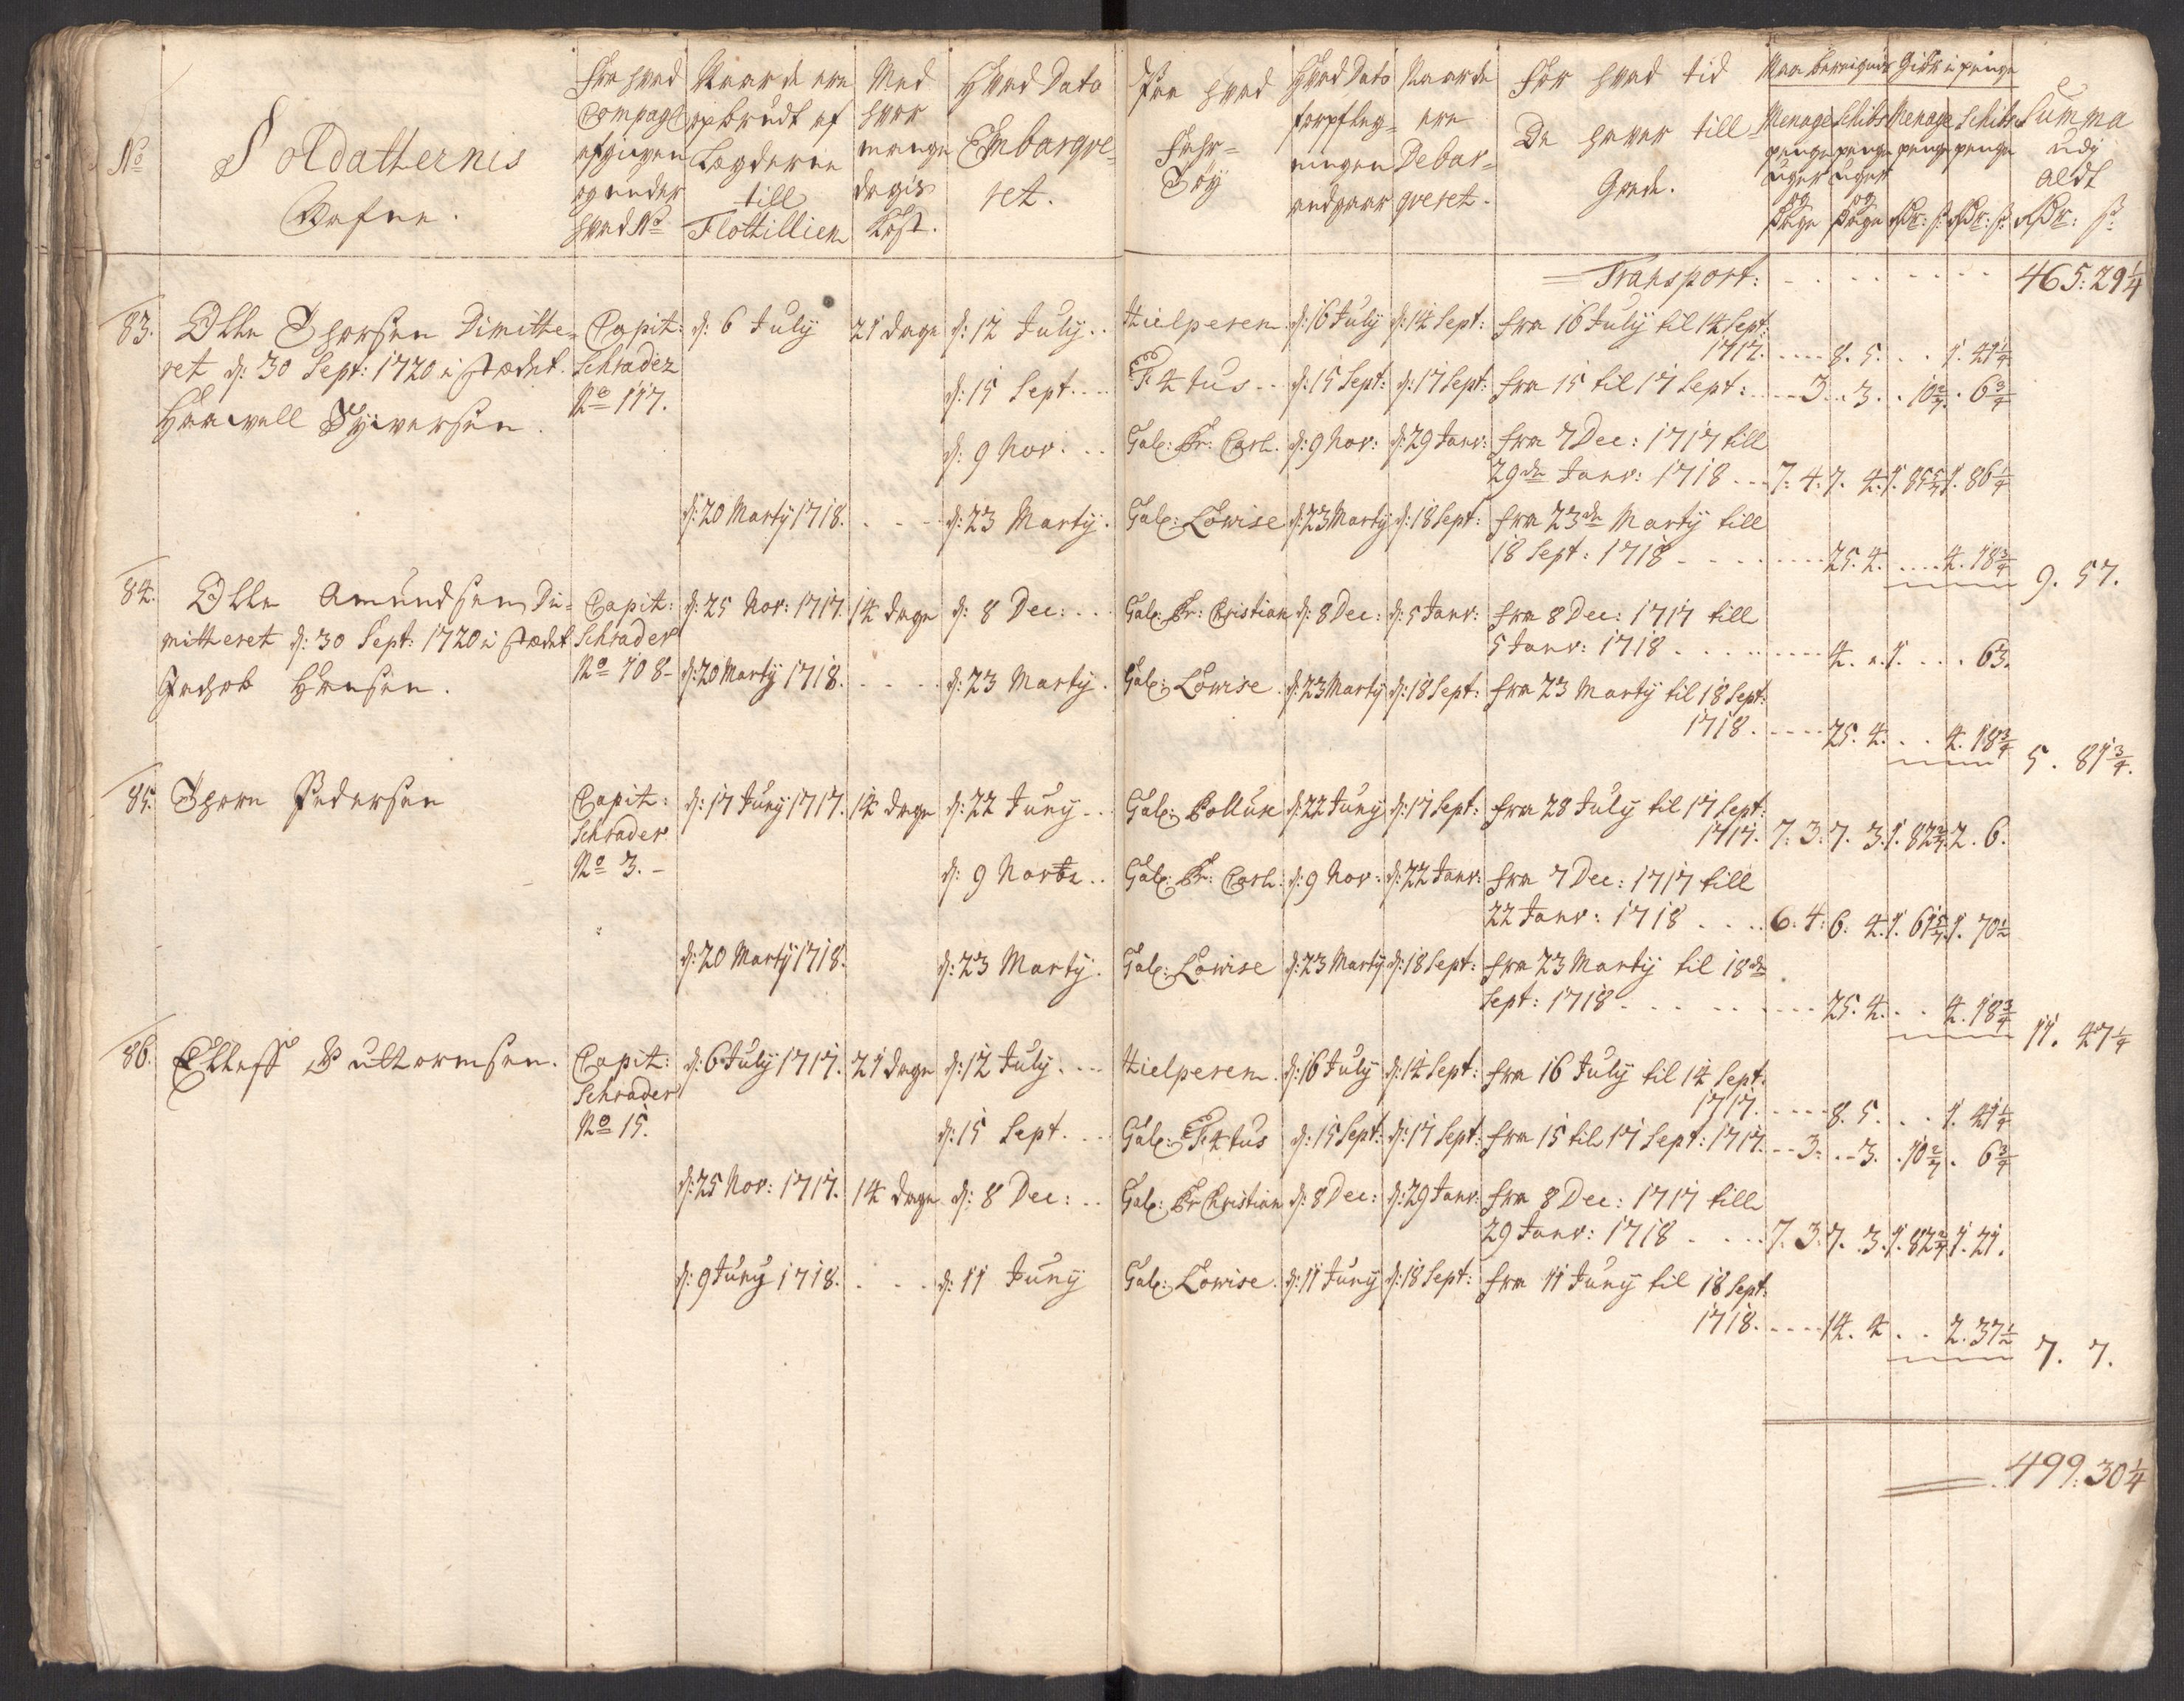 No
Soldatternis
Nafne.
Fra hvad
Compagē
afgivgen
og under
hvad No
Naar de ere
opbrudt af
Lægderne
till
Flottillien
Med
hvor
mange
dagis
Kost.
Hvad Dato
Embarqve=
ret.
Paa hvad
Fahr=
Tøy
Hvad Dato
forpfleg=
ningen
andgaar
Naar de
ere
Debar=
qveret.
For hvad tid
De haver till
Gode.
Naar bereignis Giør i penge
Menage Schibs Menage Schibs
penge penge penge penge
Uger Uger
og og
Dage Dage Rdr: ß Rdr: ß
Summa
udj
aldt
Rdr: ß
Transport: - - - - 465: 29 1/4
83. Olle Thorsen Dimitte=
ret d: 30 Sept: 1720 i stædet
Haavell Syversen.
Capit:
Schrader
No 117.
d: 6 July 21 dage d: 12 July.. Hielperen d: 16 July d: 14 Sept: fra 16 July til 14 Sept:
1717. ---- 8. 5. . . 1. 41 1/4
d: 15 Sept... d: 15 Sept: d: 17 Sept: fra 15 til 17 Sept: --- 3. . 3. . 10 2/7. . 6 3/4
d: 9 Nov: .. Gal: Pr: Carl. d: 9 Nov: d: 29 Janv: fra 7 Dec: 1717 till
29de Janv: 1718 -- 7. 4. 7. 4. 1. 85 5/7 1. 86 1/4
d: 20 Martij 1718. . - - d: 23 Martij. Gal: Lowise d: 23 Martij d: 18 Sept: fra 23de Martij till
18 Sept: 1718 - - - - 25. 4. ... 4. 18 3/4
9. 57.
84. Olle Amundsen Di=
mitteret d: 30 Sept: 1720 i stædet
Jachob Hansen.
Capit:
Schrader
No 108-
d: 25 Nov: 1717. 14 dage d: 8 Dec: ... Gal: Pr: Christian d: 8 Dec: d: 5 Janv: fra 8 Dec: 1717 till
5 Janv: 1718 . . . . . 4. . 1. . . . 63.
d: 20 Martij 1718. . . . d: 23 Martij. Gal: Lowise. d: 23 Martij d: 18 Sept: fra 23 Martij til 18 Sept:
1718. ---- 25. 4. . . 4. 18 3/4
5. 81 3/4.
85. Thore Pedersen
Capit:
Schrader
No 3. -
d: 17 Junij 1717. 14 dage d: 22 Junij.. Gal: Pollux d: 22 Junij d: 17 Sept: fra 28 July til 17 Sept:
1717. 7. 3. 7. 3. 1. 82 2/7. 2. 6.
d: 9 .. Gal: Pr: Carl: d: 9 Nov: d: 22 Janv: fra 7 Dec: 1717 till
22 Janv: 1718 . . . . 6. 4. 6. 4. 1. 61 5/7. 1. 70 1/2
d: 20 Martij 1718. d: 23 Martij. Gal: Lowise d: 23 Martij d: 18 Sept: fra 23 Martij til 18de
Sept: 1718 - - - - 25. 4. . . 4. 18 3/4
11. 47 1/4
86. Elleff Guttormsen.
Capit:
Schrader
No 15.
d: 6 July 1717. 21 dage d: 12 July. -- Hielperen. d: 16 July d: 14 Sept: fra 16 July til 14 Sept:
1717. ---- 8. 5. . . 1. 41 1/4
d: 15 Sept. -- Gal: d: 15 Sept: d: 17 Sept: fra 15 til 17 Sept: 1717. -- 3. .. 3. . 10 2/7. . 6 3/4
d: 25 Nov: 1717. 14 dage d: 8 Dec: .. Gal: Pr Christian d: 8 Dec: d: 29 Janv: fra 8 Dec: 1717 till
29 Janv: 1718 . . . . 7. 3. 7. 3. 1. 82 2/7 1. 21.
d: 9 Junij 1718. . . . d: 11 Junij Gal: Lowise. d: 11 Junij d: 18 Sept: fra 11 Junij til 18 Sept:
1718. ---- 14. 4 . . 2. 37 1/2
7. 7.
499: 30 1/4